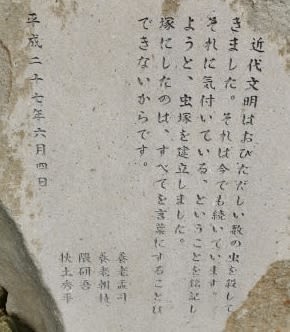 近代文明はおびただしい数の虫を殺して
きました。それは今でも続いています。
それに気付いている、ということを銘記し
ようと、虫塚を建立しました。
塚にしたのは、すべてを言葉にすることは
できないからです。
平成二十七年六月四日
養老孟司
養老朝枝
隈研吾
挾土秀平